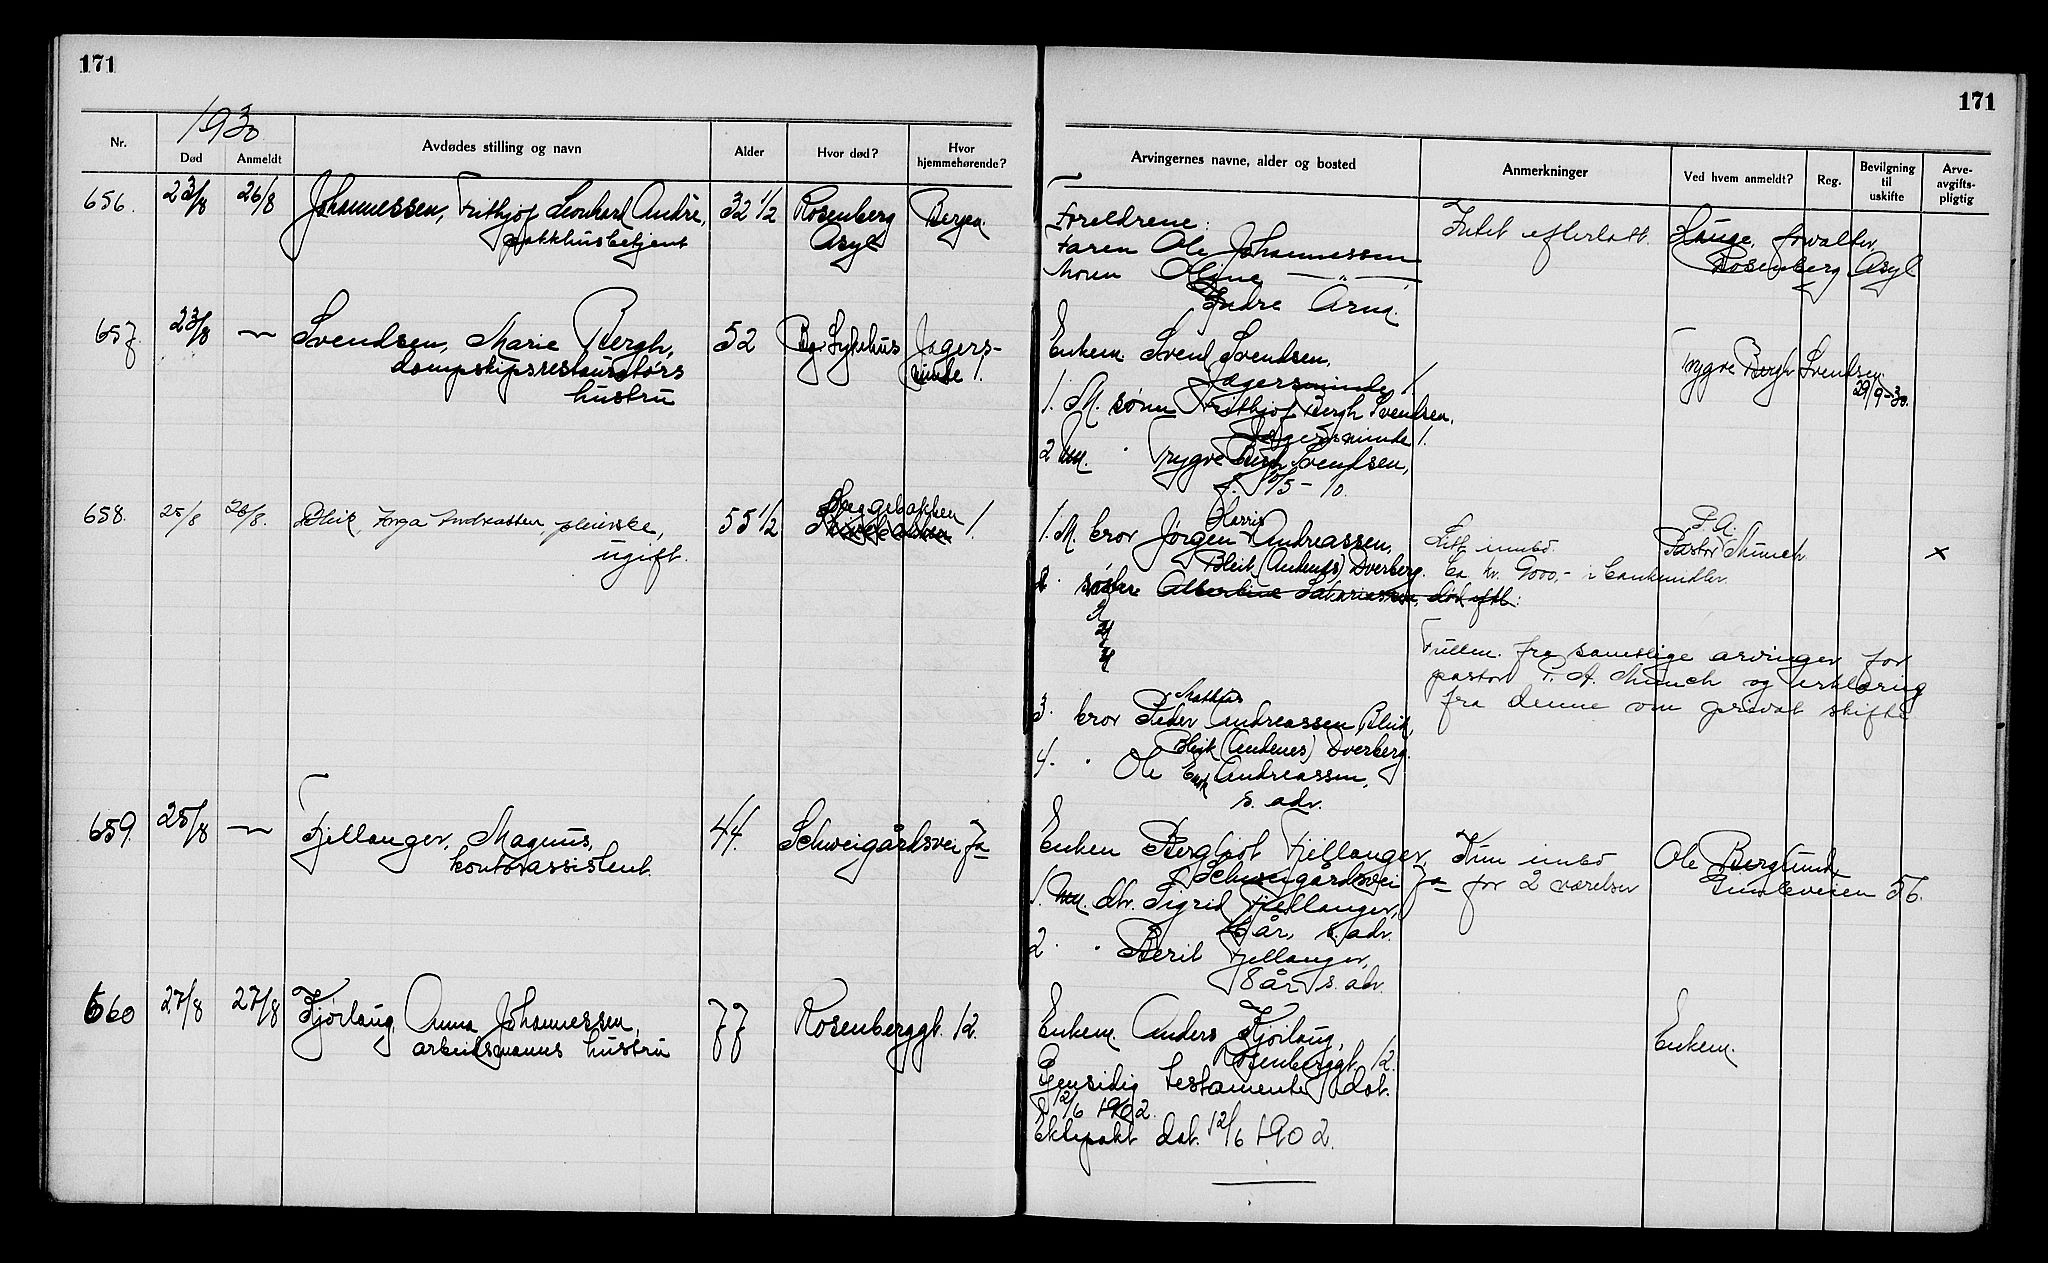 171
171
1930
Nr.
Død
Anmeldt
Avdødes stilling og navn
Alder
Hvor død?
Hvor
hjemmehørende?
Arvingernes navne, alder og bosted
Anmerkninger
Ved hvem anmeldt?
Reg.
Bevilgning
til
uskifte
Arve-
avgifts-
pligtig
656. 23/8 26/8 Johannessen, Frithjof Leonhard Andrè, 32 1/2 Rosenberg Bergen
pakkhusbetjent Asyl
Foreldrene:
Faren Ole Johannessen
Moren Oline — " —
Indre Arna.
Intet efterlatt.
Hauge, forvalter,
Rosenberg Asyl
657. 23/8 — Svendsen, Marie Bergh, 52 Bg. Sykehus Jægers-
dampskipsrestauratørs minde 1.
hustru
Enkem. Svend Svendsen,
Jægersminde 1.
1. M. sønn Frithjof Bergh Svendsen,
Jægersminde 1.
2 um. " Trygve Bergh Svendsen,
f. /5-10.
Trygve Bergh Svendsen.
29/9-30.
658. 25/8 26/8. Bleik, Inga Andreassen, pleierske, 55 1/2 Hæggebakken 1.
ugift.
1. M. bror Jørgen Andreassen,
Bleik (Andenes) Dverberg.
2. søstre Albertine Sakariassen, død eftl:
1
2
3
3. bror Peder Mathias Andreassen Bleik,
Bleik (Andenes) Dverberg.
4. " Ole Andreassen,
s. adr.
Litt innbo.
Ca kr. 9000,- i bankmidler.
Fullm. fra samtlige arvinger for
pastor P. A. Munch og erklæring
fra denne om privat skifte
P. A.
Pastor Munch
x
659. 25/8 — Fjellanger, Magnus, 44. Schweigårdsvei 7a
kontorassistent.
Enken Bergljot Fjellanger,
Schweigårdsvei 7a
1. um. dtr. Sigrid Fjellanger,
år, s. adr.
2. " Berit Fjellanger,
8 år s. adr.
Kun innbo
for 2 værelser
Ole Berglund,
Gimleveien 56.
660 27/8 27/8 Kjørlaug, Anna Johannessen, 77 Rosenberggt. 12.
arbeidsmanns hustru
Enkem. Anders Kjørlaug,
Rosenberggt. 12.
Gjensidig testamente dat.
12/6 1902.
Ektepakt dat. 12/6 1902.
Enkem.